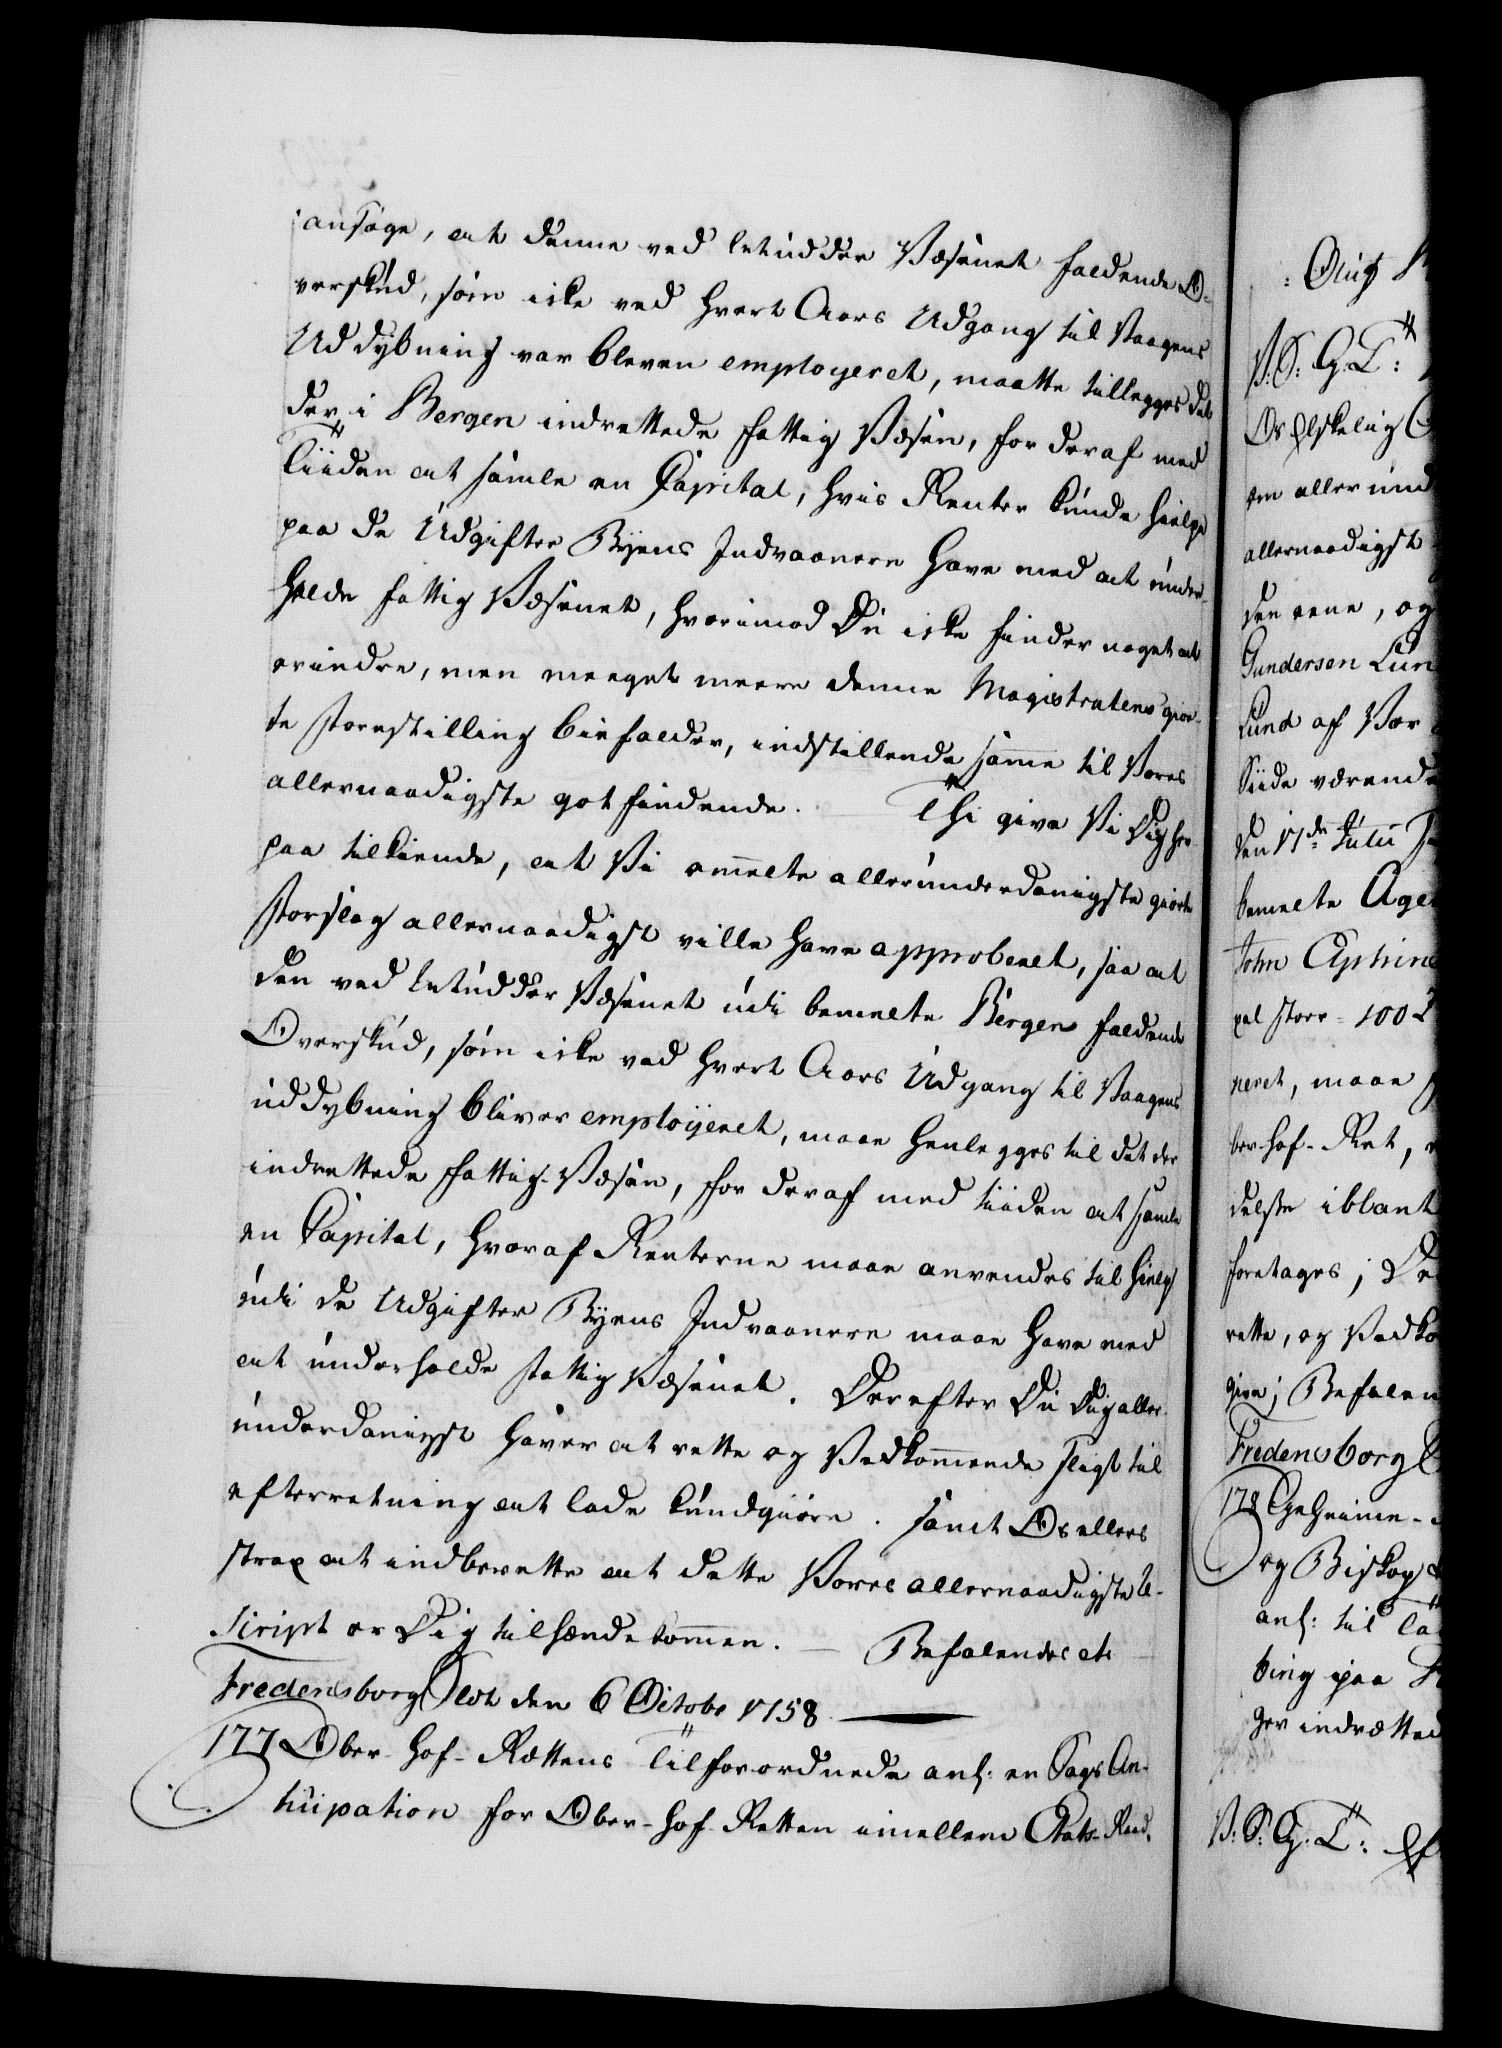 ansøge, at denne ved betudder Væsenet faldende O-
verskud, som icke ved hvert Aars Udgang til Vaagens
Uddybning var bleven employeret, maatte tillegges det
der i Bergen indrettede Fattig Væsen, for deraf med
Tiiden at samle en Capital, hvis Renter kunde hielpe
paa de Udgifter Byens Indvaanere have med at under-
holde Fattig Væsenet, hvorimod Du icke finder noget at
erindre, men meeget meere denne Magistratens gior-
te Forestilling biefalder, indstillende samme til Vores
allernaadigste gotfindende. Thi give Vi Dig her
paa tilkiende, at Vi ommelte allerunderdanigste giorte
Forslag allernaadigst ville have approberet, saa at
den ved betudder Væsenet udi bemelte Bergen faldende
Overskud, som icke ved hvert Aars Udgang til Vaagens
uddybning bliver employeret, maae henlegges til det der
indrettede Fattig-Væsen, for deraf med tiiden at samle
en Capital, hvoraf Renterne maae anvendes til hielp
udi de Udgifter Byens Indvaanere maae have med
at underholde Fattig Væsenet. Derefter Du Dig aller-
underdanigst haver at rette og Vedkommende sligt til
efterretning at lade kundgiøre. samt Os ellers
strax at indberette at dette Vores allernaadigste Re-
script er Dig tilhændekommen. — Befalendes etc
Fredensborg Slot den 6 Octobr 1758
177 Ober-Hof-Rettens Tilforordnede anl: en Sags An-
ticipation for Ober-Hof-Retten imellem Etats-Raad
: Oluf
V. S: G. T:
Os Elskelig
om allerund
allernaadigst
den eene, og
Gundersen Lun
Lund af Vor
Siide værende
den 17de Julii
bemelte Age
John
pal stor 100
neret, maae
ber-Hof-Ret,
delste iblant
foretages; De
rette, og Vedko
give; Befalen
Fredensborg
178 Geheime-
og Biskop
anl: til
bing paa
ger indrætted
V: S: G. T: